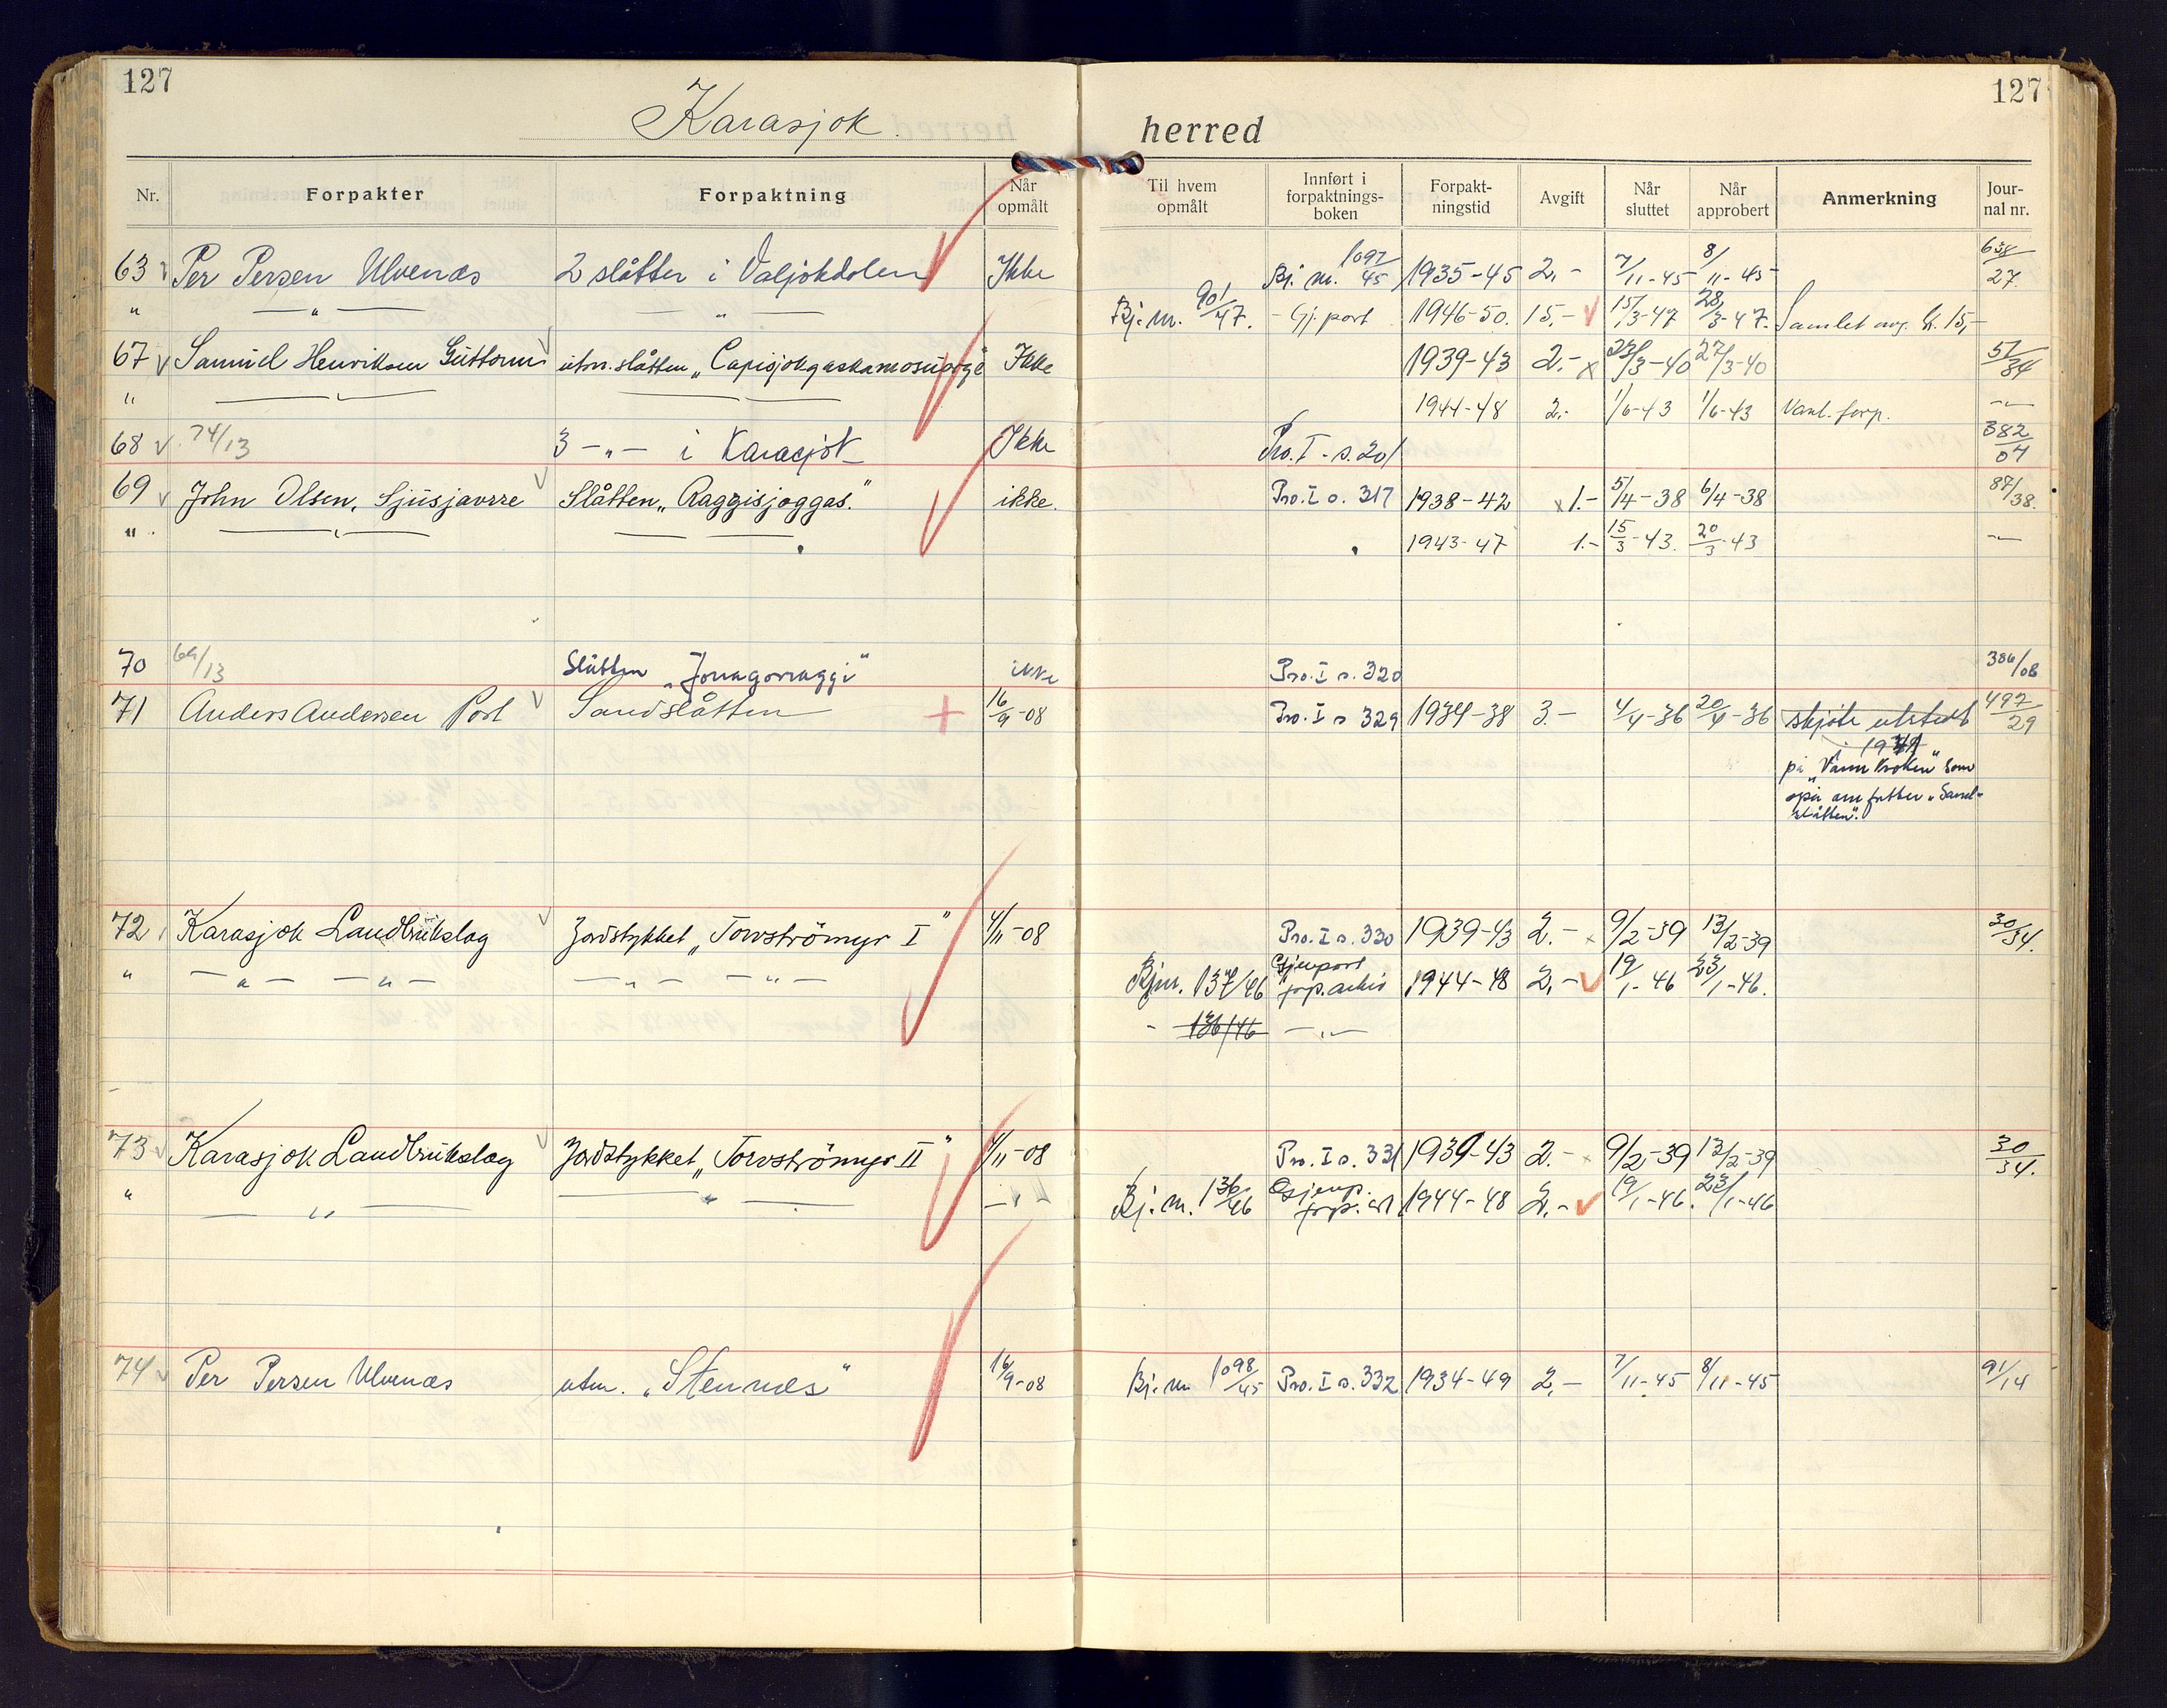 127
127
Karasjok herred
Nr. Forpakter Forpaktning Når opmålt Til hvem opmålt Innført i forpaktnings-boken Forpakt-ningstid Avgift Når sluttet Når approbert Anmerkning Jour-nal nr.
63 Per Persen Ulvenæs 2 slåtter i Valjokdalen Ikke Bj. m. 1097/45 1935-45 2,- 7/11-45 8/11-45 27
" —"— —"— Bj. m. 901/47. - Gj.part 1946-50. 15,- 15/3-47 28/3-47 Samlet avg. kr. 15,-
67 Samuel Henriksen Guttorm utm. slåtten Ikke 1939-43 2.- x 23/3-40 27/3-40 51/34
" —"— —"— 1944-48 2.- 1/6-43 1/6-43 Vanl. forp. -"-
68 74/13 3 -"- i Karasjok Ikke Pro. I - s. 201 382/04
69 John Olsen, Sjusjavrre Slåtten „Raggisjoggas." ikke. Pro. I s. 317 1938-42 x 1.- 5/4-38 6/4-38 87/38.
" . —"— — — 1943-47 1.- 15/3-43. 20/3-43 -"-
70 64/13 Slåtten „Jorragorraggi" ikke Pro. I s. 320 386/08
71 Anders Andersen Port Sandslåtten + 16/9-08 Pro. I s 329 1934-38 3.- 4/4-36 20/4-36 skjøte utstedt 497/29
på „Vann kroken" som
også omfatter „Sand-
slåtten".
72 Karasjok Landbrukslag Jordstykket „Torvströmyr I" 4/11-08 Pro. I s. 330 1939-43 2.- x 9/2-39 13/2-39 30/34.
" -"- -"- -"- -"- Bjm. 137/46 Gjenpart forp.arkiv 1944-48 2,- 19/1-46 23/1-46.
- 136/46 -"-
73 Karasjok Landbrukslag Jordstykket „Torvströmyr II" 4/11-08 Pro. I s. 331 1939-43 2.- x 9/2-39 13/2-39 30/34.
" —"— —"— -"- Bj. m. 136/46 Gjenp. forp. ark 1944-48 2,- 19/1-46. 23/1-46
74 Per Persen Ulvenæs utm. „Stennes" 16/9-08 Bj. m 1098/45 Pro. I s. 332 1934-49 2,- 7/11-45 8/11-45 91/14